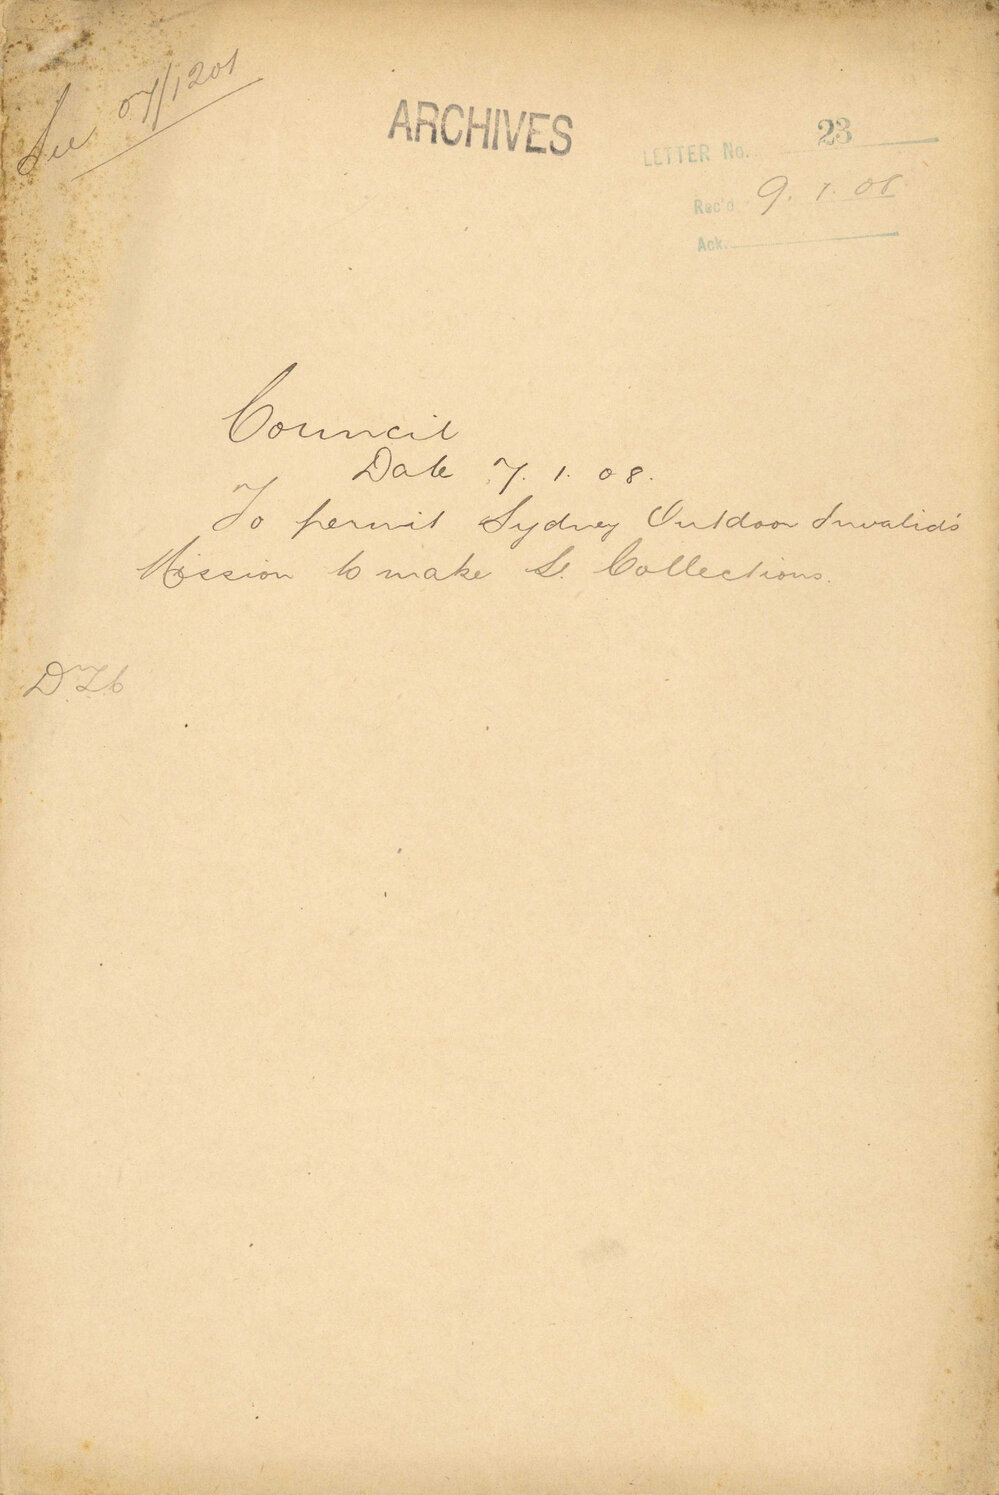 See 07/1201
ARCHIVES
LETTER No. 23
Rec'd 9.1.08
Ack.
Council
Date 7.1.08.
To permit Sydney Outdoor Invalid's
Mission to make St. Collections.